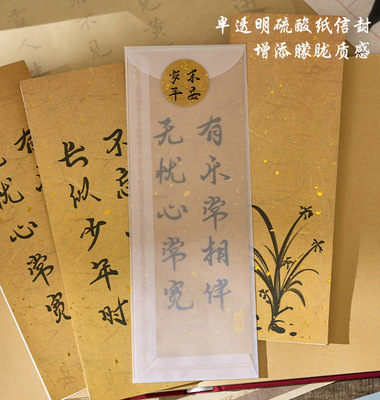 半透明硫酸纸信封
增添朦胧质感
有乐常相伴
无忧心常宽
不忘
长似少年时
忧心常宽
不见